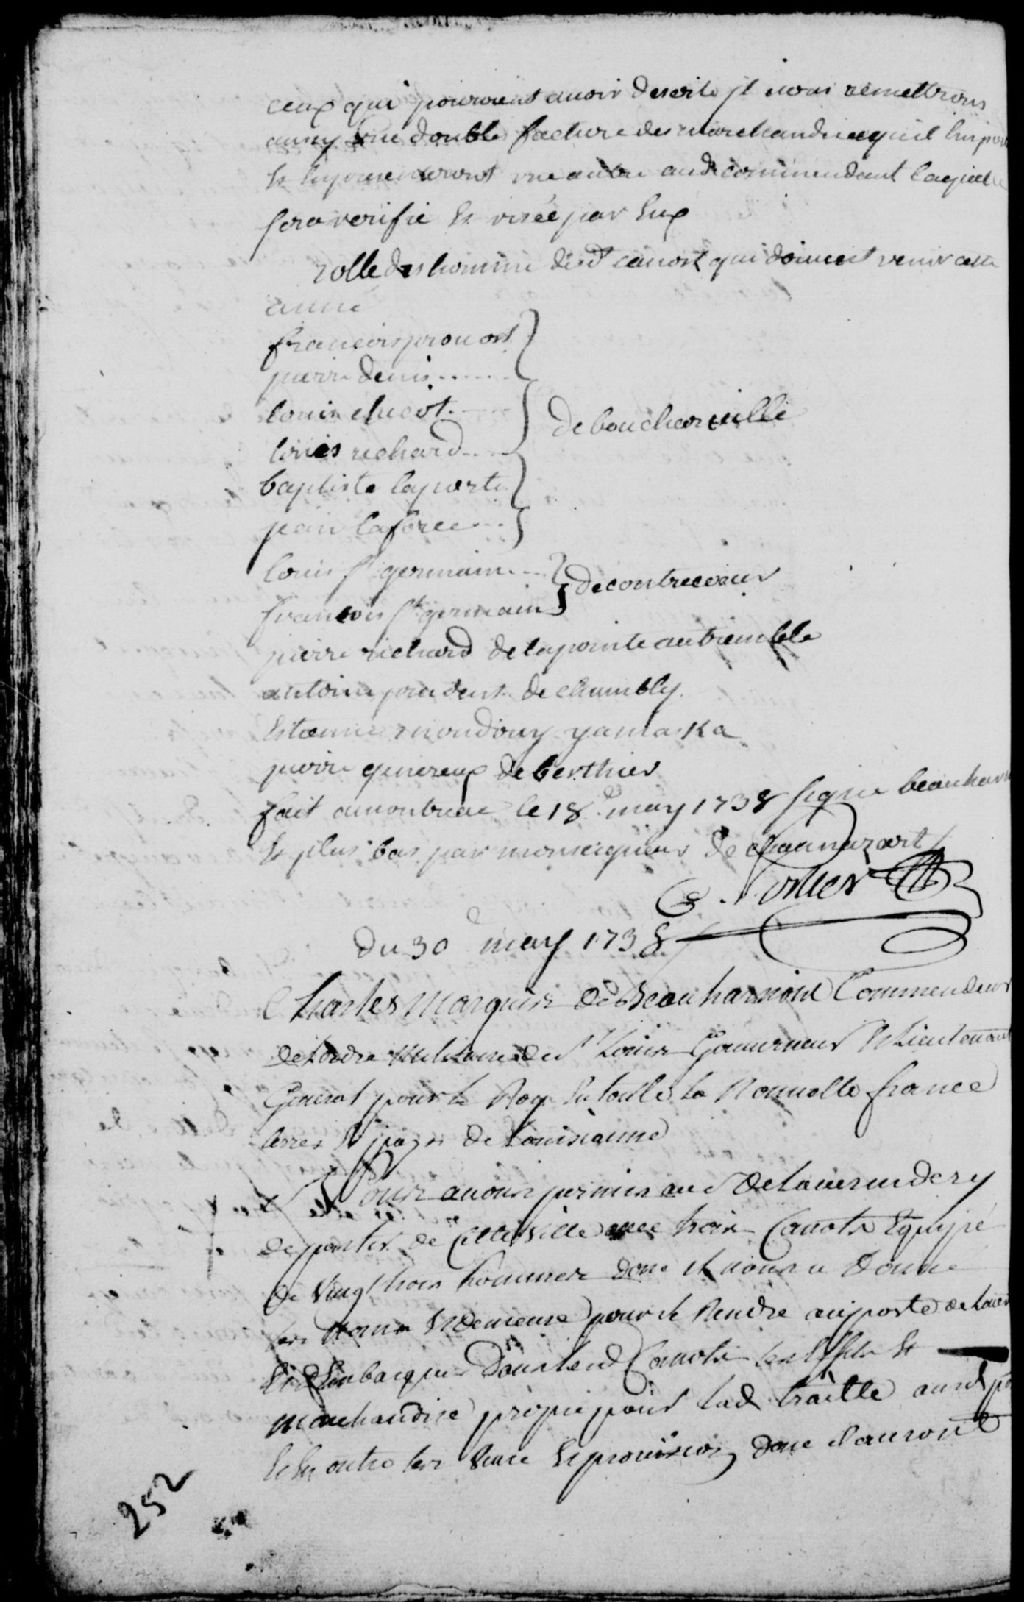 ceux qui pouroient avoir deserté et nous remettrons
aussy une double facture des marchandises quil
sera verifié et visée par Eux
rolle des homme dud canost qui doivent venir cette
anné
francois prouost
pierre denis
louis
louis richard
baptiste laporte
jean laforce
de boucherville
louis st germain
francois st germain
de contrecoeur
pierre richard de la pointe au tremble
antoine prudent de chambly
Estienne mondouy yamaska
pierre genereux de berthier
fait a montreal le 18e may 1738 signé beauharn
et plus bas par monseigneur De chaumaront
C. Porlier
du 30e may 1738
Charles Marquis de Beauharnois Commandeur
de Lordre Militaire de St Louis Gouverneur et Lieutenant
General pour le Roy en toutte la Nouvelle france
terres et pays de Louisianne
Nous avons permis au S. De Laverendery
de partir de Cette Ville avec trois Canots Equipé
de Vingt trois hommes dont il nous a Donné
les Noms et demeure pour se Rendre au poste de Louest
Et dEmbarquer Dans lesd Canots les Effets et
Marchandise propre pour lad traitte aud
Et En outre les Vivre et provision dont ils auront
252